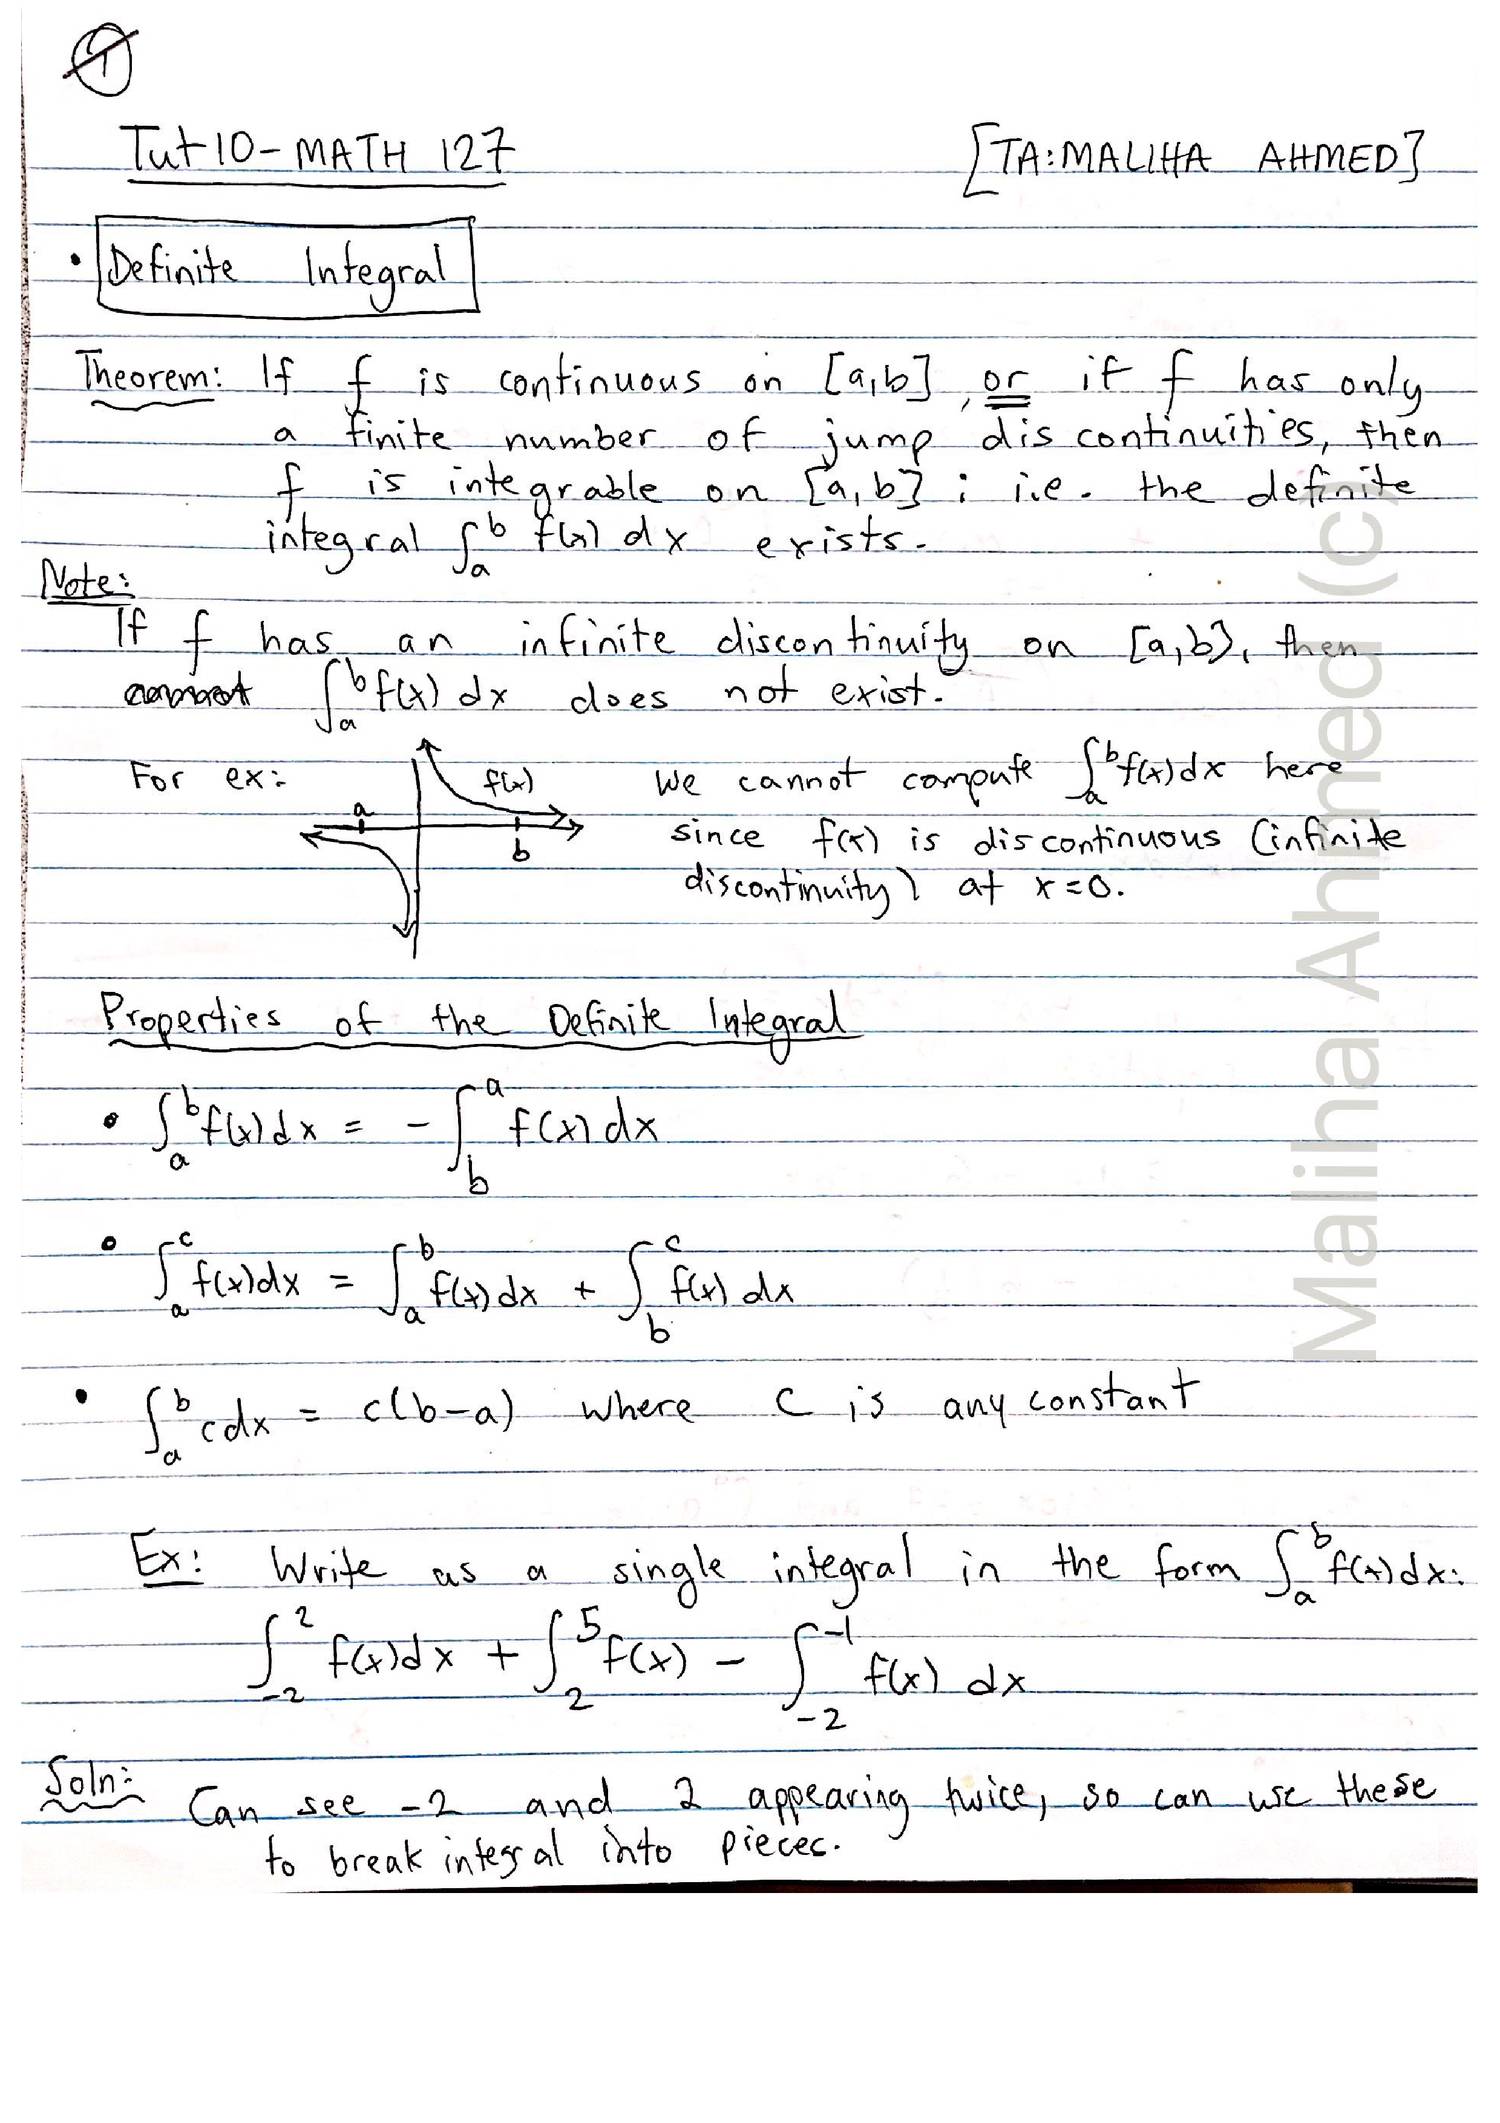 1
Tut 10 - MATH 127 [TA: MALIHA AHMED]
• Definite Integral
Theorem: If f is continuous on [a,b], or if f has only
a finite number of jump discontinuities, then
f is integrable on [a,b] ; i.e. the definite
integral ∫_a^b f(x) dx exists.
Note:
If f has an infinite discontinuity on [a,b], then
∫_a^b f(x) dx does not exist.
For ex: f(x) a b
We cannot compute ∫_a^b f(x) dx here
since f(x) is discontinuous (infinite
discontinuity) at x=0.
Properties of the Definite Integral
• ∫_a^b f(x) dx = - ∫_b^a f(x) dx
• ∫_a^c f(x) dx = ∫_a^b f(x) dx + ∫_b^c f(x) dx
• ∫_a^b c dx = c(b-a) where c is any constant
Ex: Write as a single integral in the form ∫_a^b f(x) dx:
∫_-2^2 f(x) dx + ∫_2^5 f(x) - ∫_-2^-1 f(x) dx
Soln: Can see -2 and 2 appearing twice, so can use these
to break integral into pieces.
Maliha Ahmed (c)